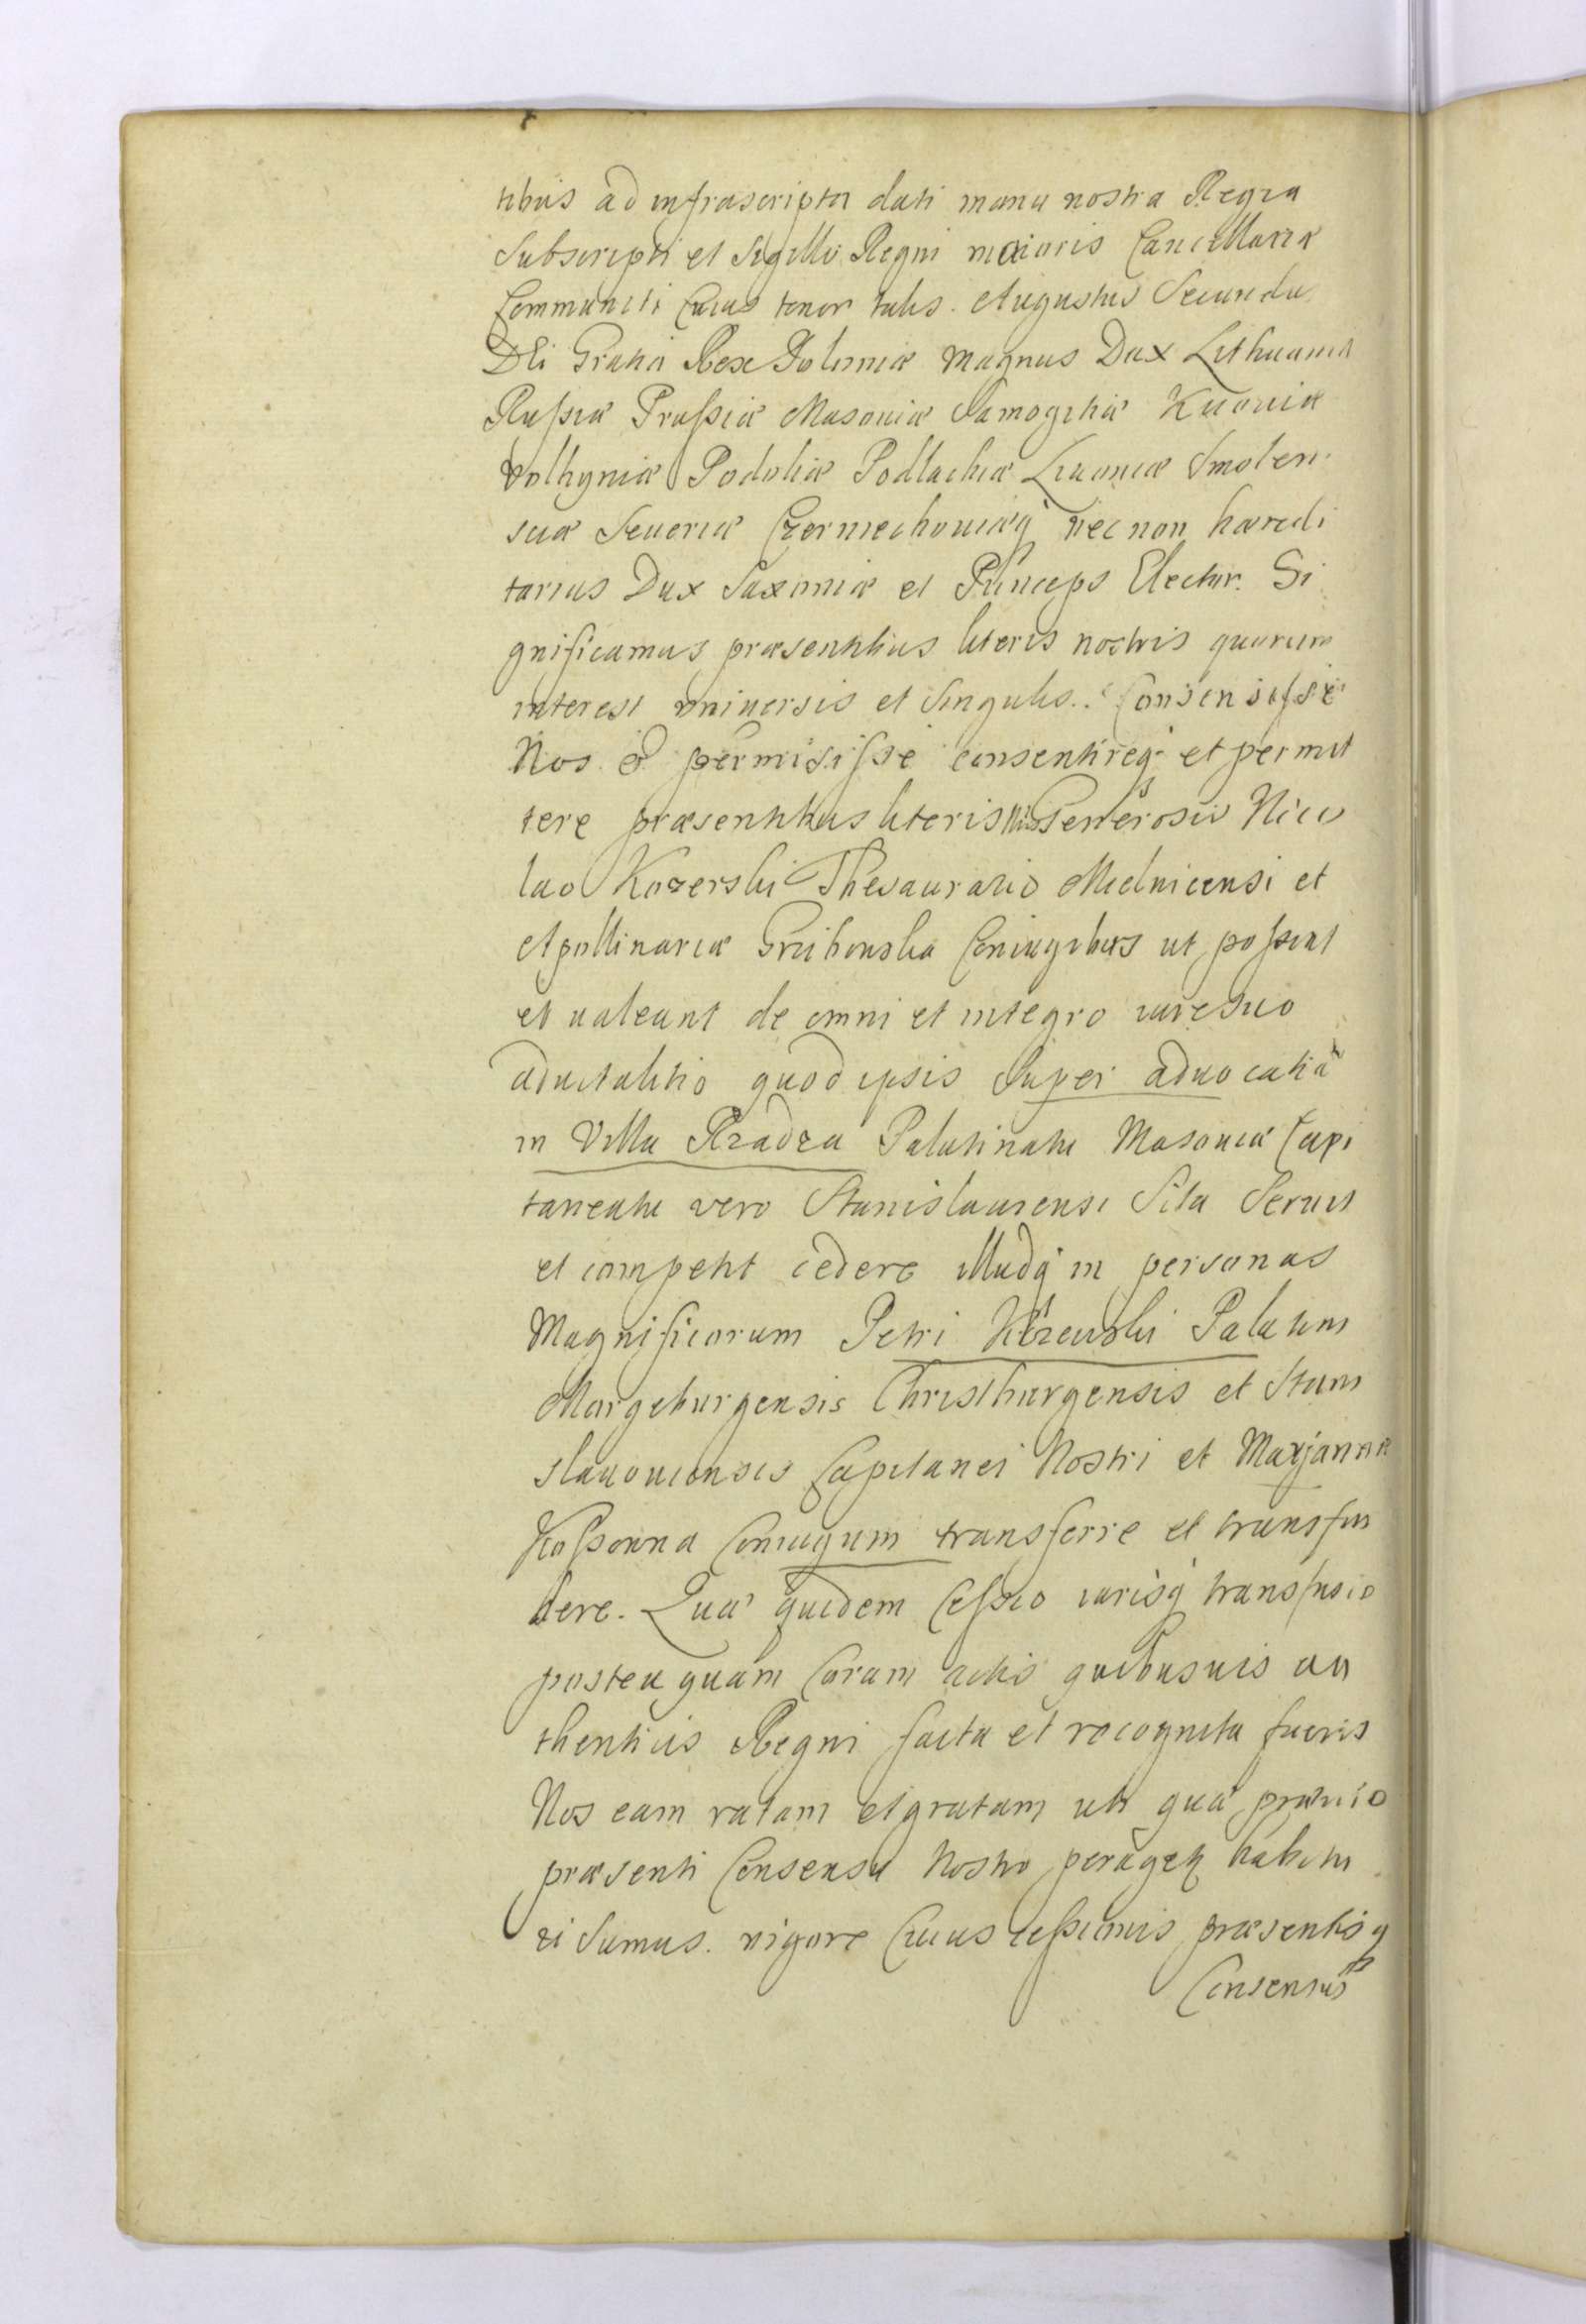 tibus ad infrascripta dati manu nostra Regia
Subscripti et Sigillo Regni maioris Cancellariæ
Communiti Cuius tenor talis. Augustus Secundus
DEi Gratia Rex Poloniæ Magnus Dux Lithuaniæ
Russiæ Prussiæ Masoviæ Samogitiæ Kijoviæ
Volhyniæ Podoliæ Podlachiæ Livoniæ Smolen
sciæ Severiæ Czerniechoviæq nec non hæredi
tarius Dux Saxoniæ et Princeps Elector. Si
gnificamus præsentibus literis nostris quorum
interest universis et Singulis. Consensisse
Nos & permisisse consentireq et permit
tere præsentibus literis Nris Generosis Nico
lao Kozerski Thesaurario Mielnicensi et
Apollinariæ Coniugibus ut possint
et valeant de omni et integro iure suo
advitalitio quod ipsis Super advocatia
in Villa Rządza Palatinatu Masoviæ Capi
taneatu vero Stanislaviensi Sita Servit
et competit cedere illudq in personas
Magnificorum Petri Palatini
Margeburgensis Christburgensis et Stani
slavoviensis Capitanei Nostri et Marjannæ
Kossonna Coniugum transferre et transfun
dere. Quæ quidem Cessio iurisq transfusio
postea quam Coram actis quibusvis au
thenticis Regni facta et recognita fuerit
Nos eam ratam et gratam uti quæ prævio
præsenti Consensu Nostro habitu
ri Sumus. vigore Cuius cessionis præsentisq
Consensus